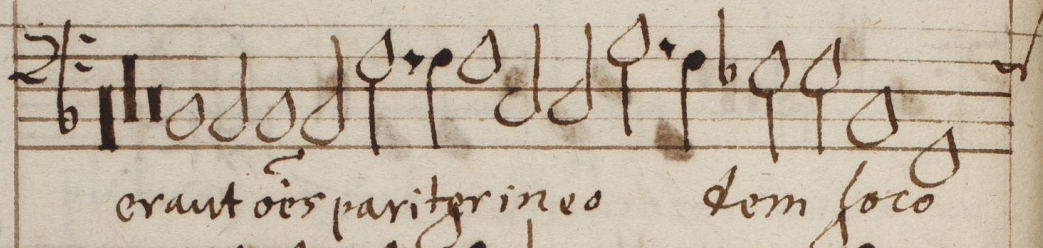 erant ões pariter in eodem loco